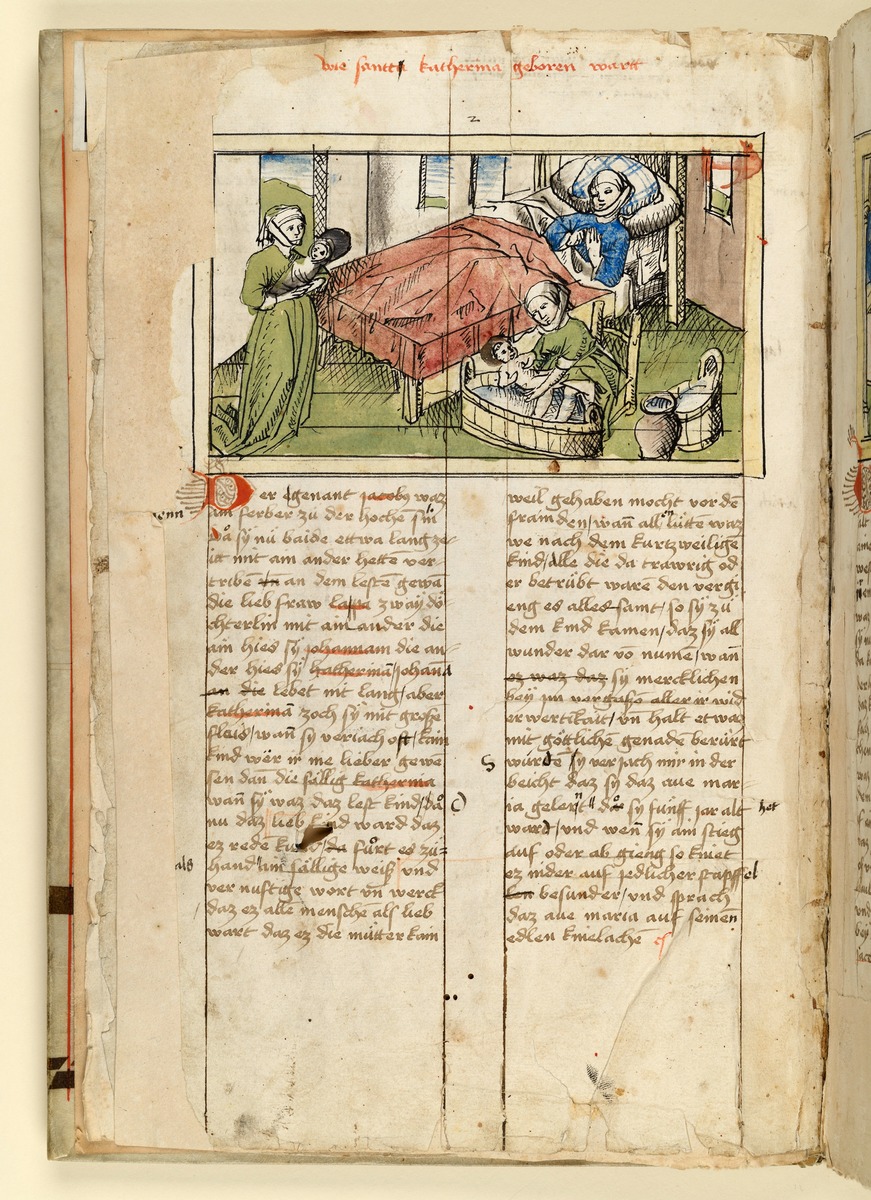 wie sancta katherina geboren wartt
2
Der egenant jacobus waz
ain ferber zu der hochen sin
wenn
da sÿ nu baide ettwa lang ze-
itt mit am ander hetten ver-
triben in an dem lesten gewā
die lieb fraw lappa zwaÿ dö-
chterlin mit ain ander die
ain hies sÿ johannam die an-
der hies sÿ katherinā/johana
an die lebet nit lang/aber
katherinā zoch sÿ mit große
fleis/wann sÿ veriach oft/kain
kind wër ir nie lieber gewe
sen dan die sällig katherina
wann sÿ waz daz lest kind/da
nu daz lieb kind ward daz
ez reden /da fürt es zü-
hand ain sällige weiß und
als
vernuftige wort vn werck
daz ez alle menschen als lieb
wart daz ez die mütter kain
weil gehaben mocht vor dē
framden/wan all lütte waz
we nach dem kurtzweiligē
kind/Alle die da trawrig od
er betrübt waren den vergi
eng es alles samt/so sÿ zü
dem kind kamen/daz sÿ all
wunder dar vō numē/wān
ez waz daz sÿ mercklichen
beÿ im vergaßē aller ir wid
erwertikait/vn halt etwaz
mit göttlichen genadē berürt
würdē sÿ verjach mir in der
beicht daz sÿ daz aue mar-
ia gelernt da sÿ fünff jar alt het
ward/und wen sÿ am stieg
auf oder ab gieng so kniet
ez nider auf jedlicher stapffel
besunder/und sprach
daz aue maria auf seinen
edlen knielachē